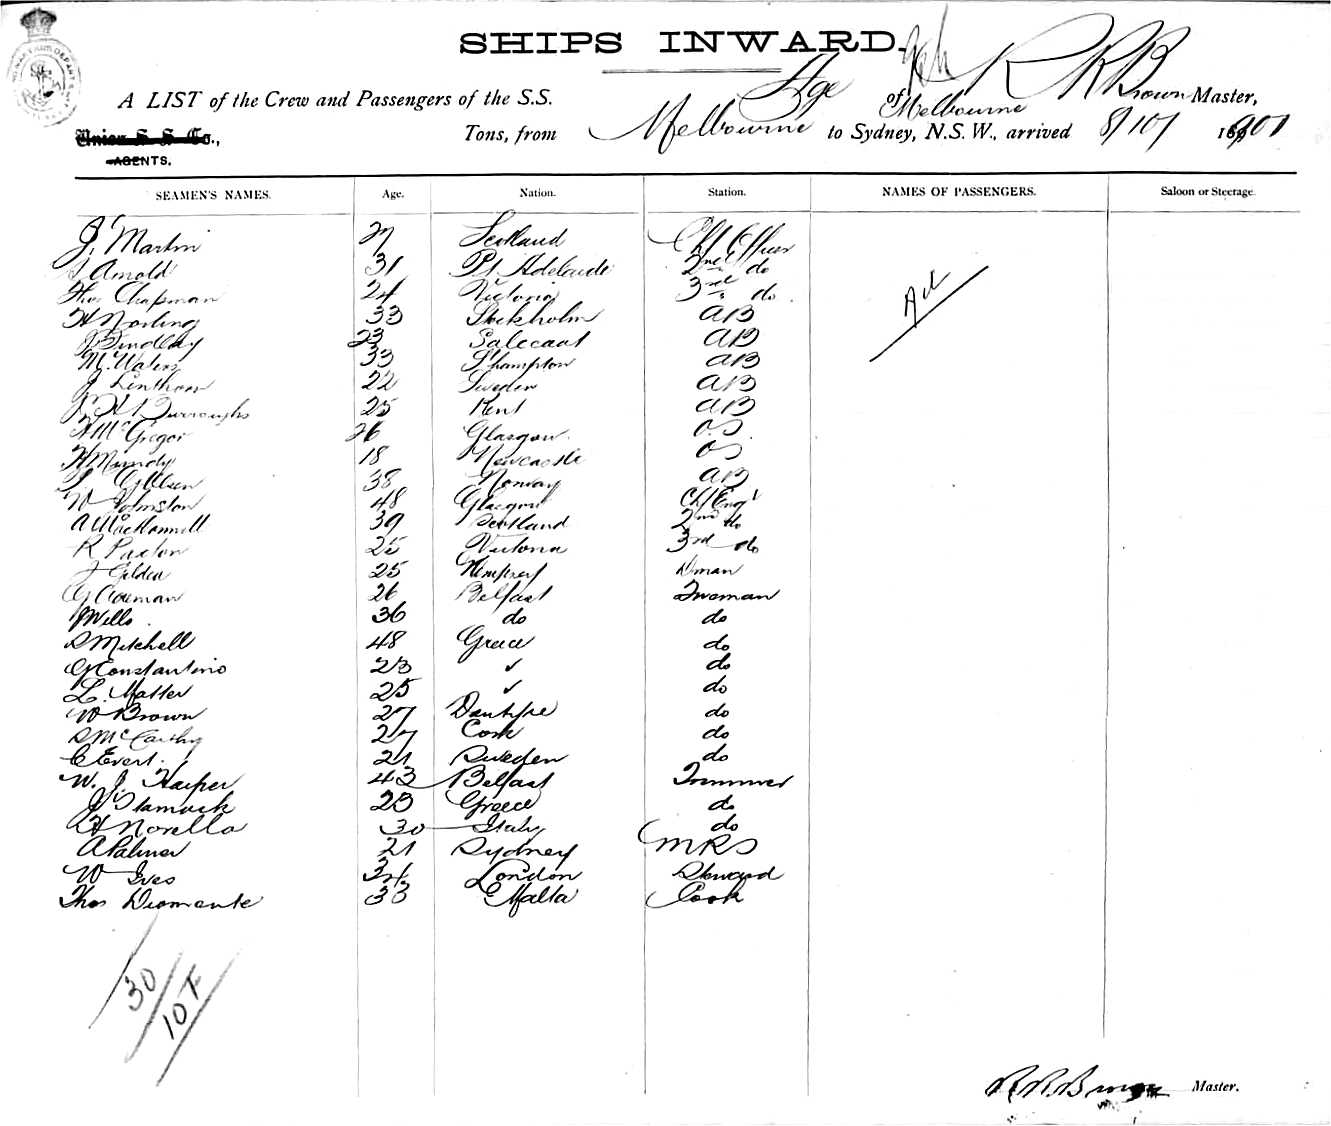 SHIPS INWARD.
A LIST of the Crew and Passengers of the S.S. Age of Melbourne R R Brown Master,
Union S. S. Co., Tons, from Melbourne to Sydney, N.S.W., arrived 8/10/ 1901
AGENTS.
SEAMEN'S NAMES. Age. Nation. Station. NAMES OF PASSENGERS. Saloon or Steerage.
J. Martin 27 Scotland Chf Officer
Arnold 31 Pt Adelaide 2nd do
Thos Chapman 24 Victoria 3rd do
H Norling 33 Stockholm AB
Findlay 23 AB
M. Waters 33 S'hampton AB
J 22 Sweden AB
H Burroughs 25 Kent AB
H McGregor 26 Glasgow OS
H Mundy 18 Newcastle OS
Olsen 38 Norway AB
W Johnston 48 Glasgow Chf Engr
A MacKonnell 39 Scotland 2nd do
R Paxton 25 Victoria 3rd do
J Gilden 25 Dman
G 26 Belfast Fireman
J Wills 36 do do
S Mitchell 48 Greece do
G Constantino 23 ✓ do
L. Matter 25 ✓ do
W Brown 27 do
D McCarthy 27 Cork do
C Evert 21 Sweden do
W. J. Harper 43 Belfast Trimmer
J Stamack 23 Greece do
H Norello 30 Italy do
A Palmer 21 Sydney MRS
W Ives 34 London Steward
Thos Diomante 33 Malta Cook
30
10 F
R R Brown Master.